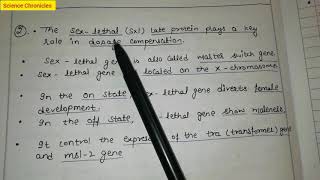 Science Chronicles
2. • The sex-lethal (sxl) late protein plays a key
role in dosage compensation.
• Sex-lethal gene is also called master switch gene.
• sex-lethal gene is located on the x-chromosome
• In the on state, sex-lethal gene diverts female
development.
• In the off state, sex-lethal gene show maleness.
• It control the expression of the tra (transformer) gene
and msl-2 gene